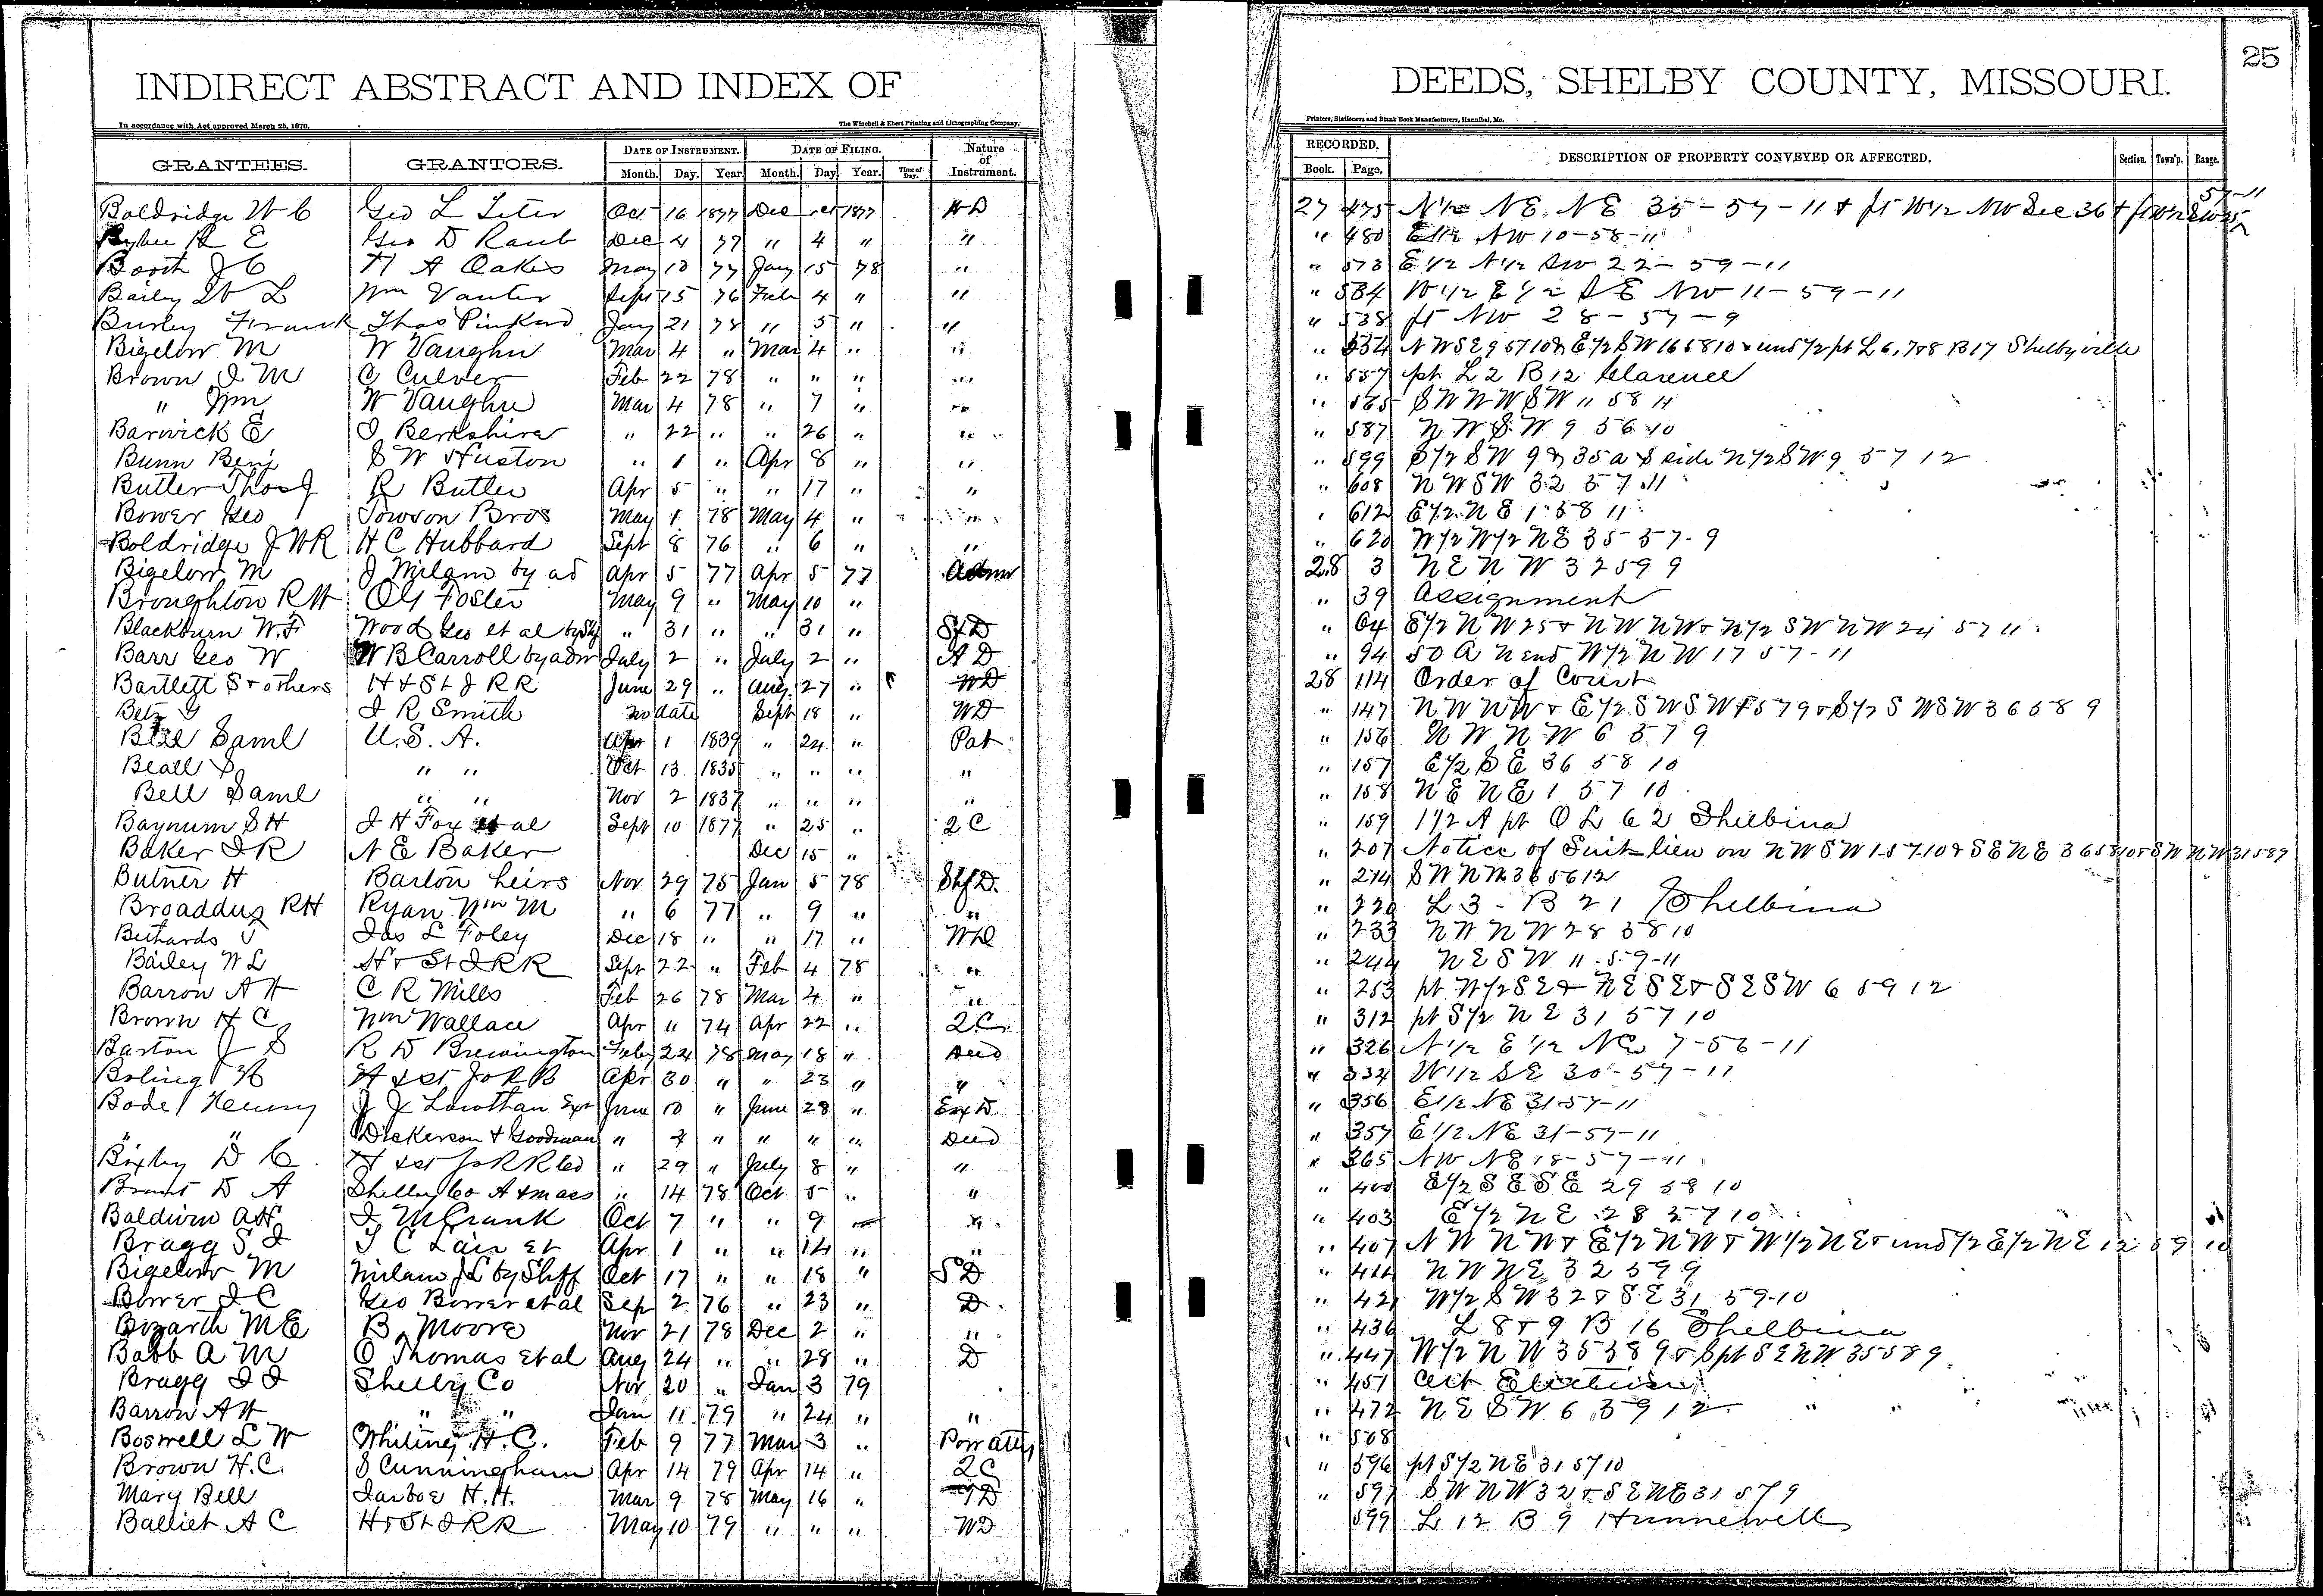 INDIRECT ABSTRACT AND INDEX OF DEEDS, SHELBY COUNTY, MISSOURI. 25
In accordance with Act approved March 25, 1870. The Winchell & Ebert Printing and Lithographing Company, Printers, Stationers and Blank Book Manufacturers, Hannibal, Mo.
GRANTEES. GRANTORS. DATE OF INSTRUMENT. DATE OF FILING. Nature of Instrument. RECORDED. DESCRIPTION OF PROPERTY CONVEYED OR AFFECTED. Section. Town'p. Range.
Month. Day. Year. Month. Day Year. Time of Day. Book. Page.
Boldridge W C Geo L Leter Oct 16 1877 Dec 1877 WD 27 475 N 1/2 NE NE 35-57-11 & pt W 1/2 NW Sec 36 57-11
E Geo D Raub Dec 4 77 " 4 " " " 480 E 1/2 NW 10-58-11
Booth J C H A Oakes May 10 77 Jany 15 78 " " 573 E 1/2 N 1/2 SW 22-59-11
Baily W L Wm Vanter Sept 15 76 Feb 4 " " " 584 W 1/2 E 1/2 SE NW 11-59-11
Burley Frank Thos Pinkard Jany 21 78 " 5 " " " 538 pt NW 28-57-9
Bigelow M W Vaughn Mar 4 " Mar 4 " " " 534 NWSE 9 57 10 & E 1/2 SW 16 58 10 & und 1/2 pt L 6, 7 & 8 B 17 Shelbyville
Brown J M C Culver Feb 22 78 " " " " " 557 pt L 2 B 12 Clarence
" Wm W Vaughn Mar 4 78 " 7 " " " 565 SW NW SW 11 58 11
Barwick E J Berkshire " 22 " " 26 " " " 587 NW SW 9 56 10
Bunn Benj S W Huston " 1 " Apr 8 " " " 599 S 1/2 SW 9 & 35 a S side N 1/2 SW 9 57 12
Butler Thos J R Butler Apr 5 " " 17 " " " 608 NW SW 32 57 11
Bower Geo Towson Bros May 1 78 May 4 " " " 612 E 1/2 NE 1 58 11
Boldridge J W R H C Hubbard Sept 8 76 " 6 " " " 620 W 1/2 W 1/2 NE 35-57-9
Bigelow M J Milam by ad Apr 5 77 Apr 5 77 28 3 NE NW 32 59 9
Broughton R H O G Foster May 9 " May 10 " " 39 Assignment
Blackburn W. F Wood Geo et al by Shf " 31 " " 31 " Sf D " 64 E 1/2 NW 25 & NW NW & N 1/2 SW NW 24 57 11
Barr Geo W W B Carroll by adm July 2 " July 2 " A D " 94 50 A N end W 1/2 NW 17 57-11
Bartlett S & others H & St J RR June 29 " Aug 27 " WD 28 114 Order of Court
Betz G J R Smith no date Sept 18 " WD " 147 NW NW & E 1/2 SW SW 57 9 & S 1/2 SW SW 36 58 9
Bell Saml U. S. A. Apr 1 1839 " 24 " Pat " 156 NW NW 6 57 9
Beall S " " Oct 13 1835 " " " " " 157 E 1/2 SE 36 58 10
Bell Saml " " Nov 2 1837 " " " " " 158 NE NE 1 57 10
Baynum S H J H Fox et al Sept 10 1877 " 25 " QC " 159 1 1/2 A pt O L 62 Shelbina
Baker J R N E Baker Dec 15 " " 207 Notice of Suit lien on NW SW 1-57-10 & SE NE 36 58 10 & SW NW 31 58 9
Butner H Barton heirs Nov 29 75 Jan 5 78 Shf D. " 214 SW NW 36 56 12
Broaddus R H Ryan Wm M " 6 77 " 9 " " " 220 L 3 - B 21 Shelbina
Bethards J Jas L Foley Dec 18 " " 17 " WD " 233 NW NW 28 58 10
Bailey W L H & St J RR Sept 22 " Feb 4 78 " " 244 NE SW 11-59-11
Barrow A H C R Mills Feb 26 78 Mar 4 " " " 253 pt W 1/2 SE & NE SE & SE SW 6 59 12
Brown H C Wm Wallace Apr " 74 Apr 22 " QC " 312 pt S 1/2 NE 31 57 10
Barton J S R D Brewington Feby 24 78 May 18 " Deed " 326 N 1/2 E 1/2 NE 7-56-11
H & St Jo RR Apr 30 " " 23 " " " 334 W 1/2 SE 30-57-11
Bodel Henry J J Lowthan Exr June 10 " June 28 " Exr D " 356 E 1/2 NE 31-57-11
" " Dickerson & Goodman " 7 " " " " Deed " 357 E 1/2 NE 31-57-11
Bixby D C H & St Jo RR Co " 29 " July 8 " " " 365 NW NE 18-57-11
D A Shelby Co A & mass " 14 78 Oct 5 " " " 400 E 1/2 SE SE 29 58 10
Baldwin A H J M Crank Oct 7 " " 9 " " 403 E 1/2 NE 28 57 10
Bragg S J T C Lair et Apr 1 " " 14 " " " 407 NW NW & E 1/2 NW & W 1/2 NE & und 1/2 E 1/2 NE 12 59 10
Bigelow M Milam J L by Shff Oct 17 " " 18 " S D " 411 NW NE 32 59 9
Bower J C Geo Bower et al Sep 2 76 " 23 " D. " 421 W 1/2 SW 32 & SE 31 59-10
Bozarth M E B. Moore Nov 21 78 Dec 2 " " " 436 L 8 & 9 B 16 Shelbina
Babb A M O Thomas et al Aug 24 " " 28 " D " 447 W 1/2 NW 35 58 9 & S pt SE NW 35 58 9
Bragg J J Shelby Co Nov 20 " Jan 3 79 " 451
Barrow A H " " Jan 11 79 " 24 " " " 472 NE SW 6 59 12
Boswell L W Whiting H. C. Feb 9 77 Mar 3 " Pow atty " 508
Brown H. C. S Cunningham Apr 14 79 Apr 14 " QC " 596 pt S 1/2 NE 31 57 10
Mary Bell Jarboe H. H. Mar 9 78 May 16 " TD " 597 SW NW 32 & SE NE 31 57 9
Balliet A C H & St J RR May 10 79 " " " WD 599 L 12 B 9 Hunnewell